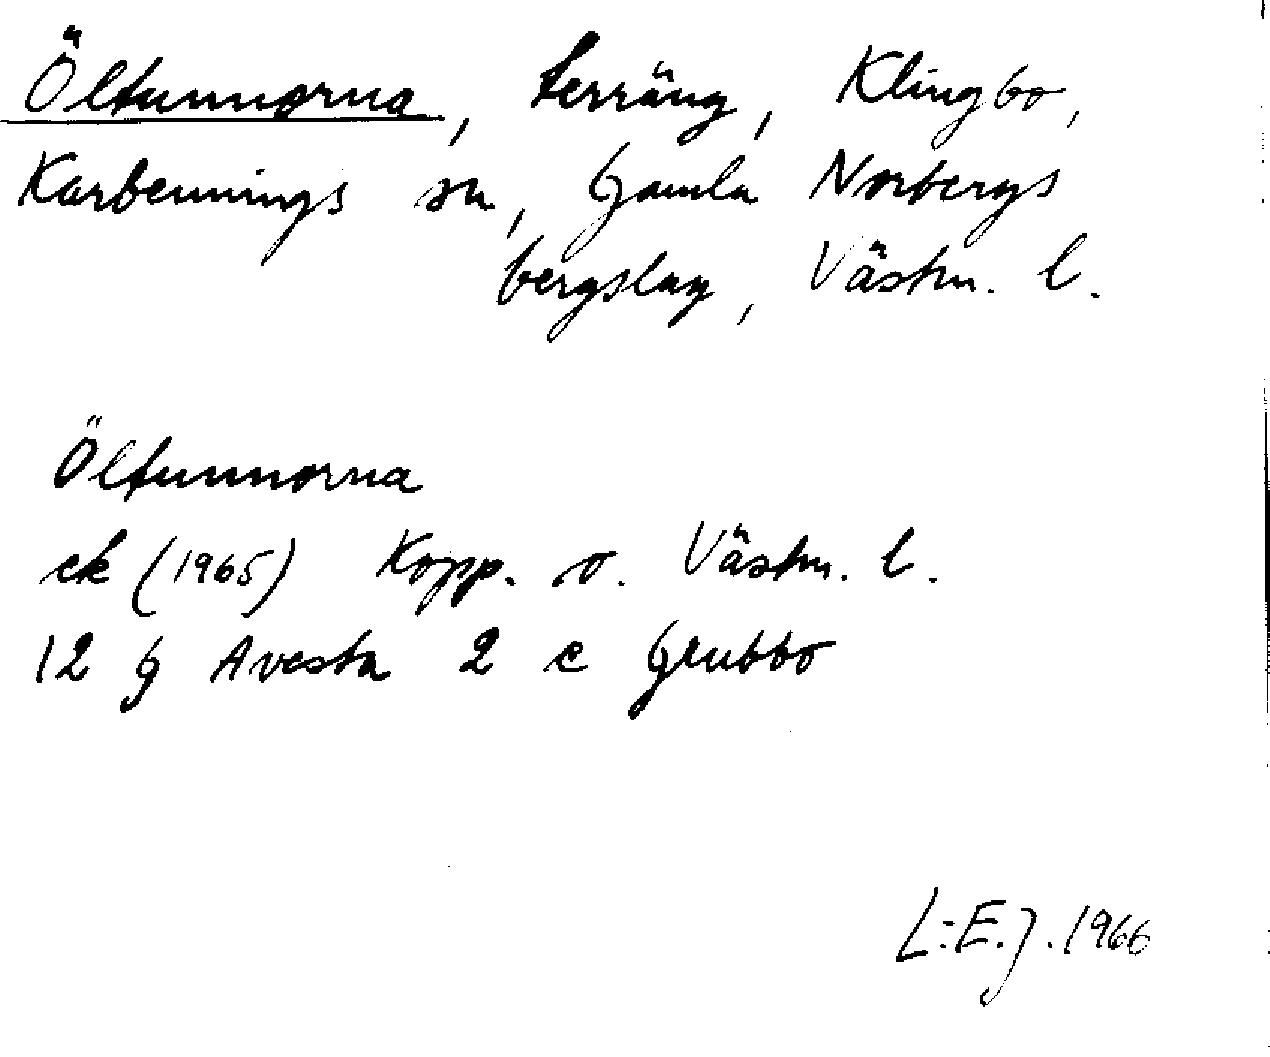 Öltunnorna, terräng, Klingbo,
Karbennings sn, Gamla Norbergs
bergslag, Västm. l.
Öltunnorna
ek (1965) Kopp. o. Västm. l.
12 G Avesta 2 e Grubbo
L:E.J. 1966